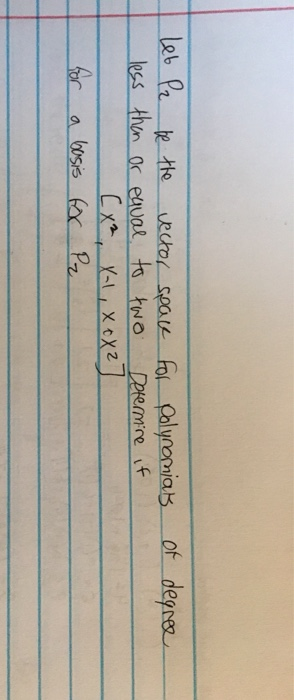 Let P2 be the vector space for polynomials of degree
less than or equal to two Determine if
[x², x-1, x+x²]
for a basis for P2